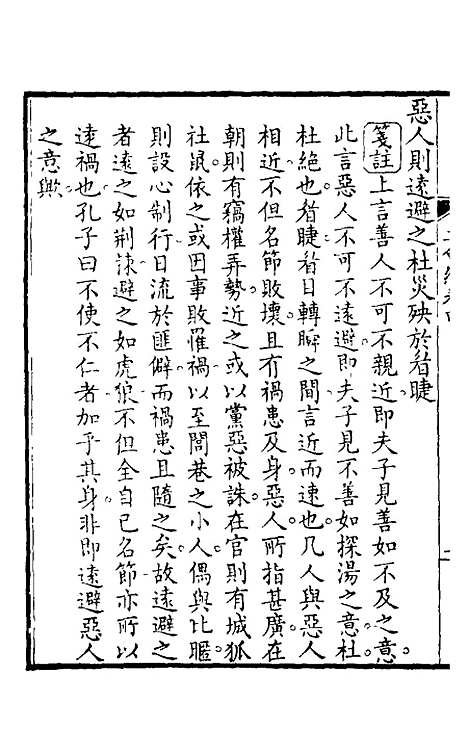 惡人則遠避之杜災殃於眉睫
箋註上言善人不可不親近即夫子見善如不及之意
此言惡人不可不遠避即夫子見不善如探湯之意杜
杜絕也眉睫眉目轉瞬之間言近而速也凡人與惡人
相近不但名節敗壞且有禍患及身惡人所指甚廣在
朝則有竊權弄勢近之或以黨惡被誅在官則有城狐
社鼠依之或因事敗罹禍以至閭巷之小人偶與比暱
則設心制行日流於匪僻而禍患且隨之矣故遠避之
者遠之如荆棘避之如虎狼不但全自己名節亦所以
遠禍也孔子曰不使不仁者加乎其身非即遠避惡人
之意與